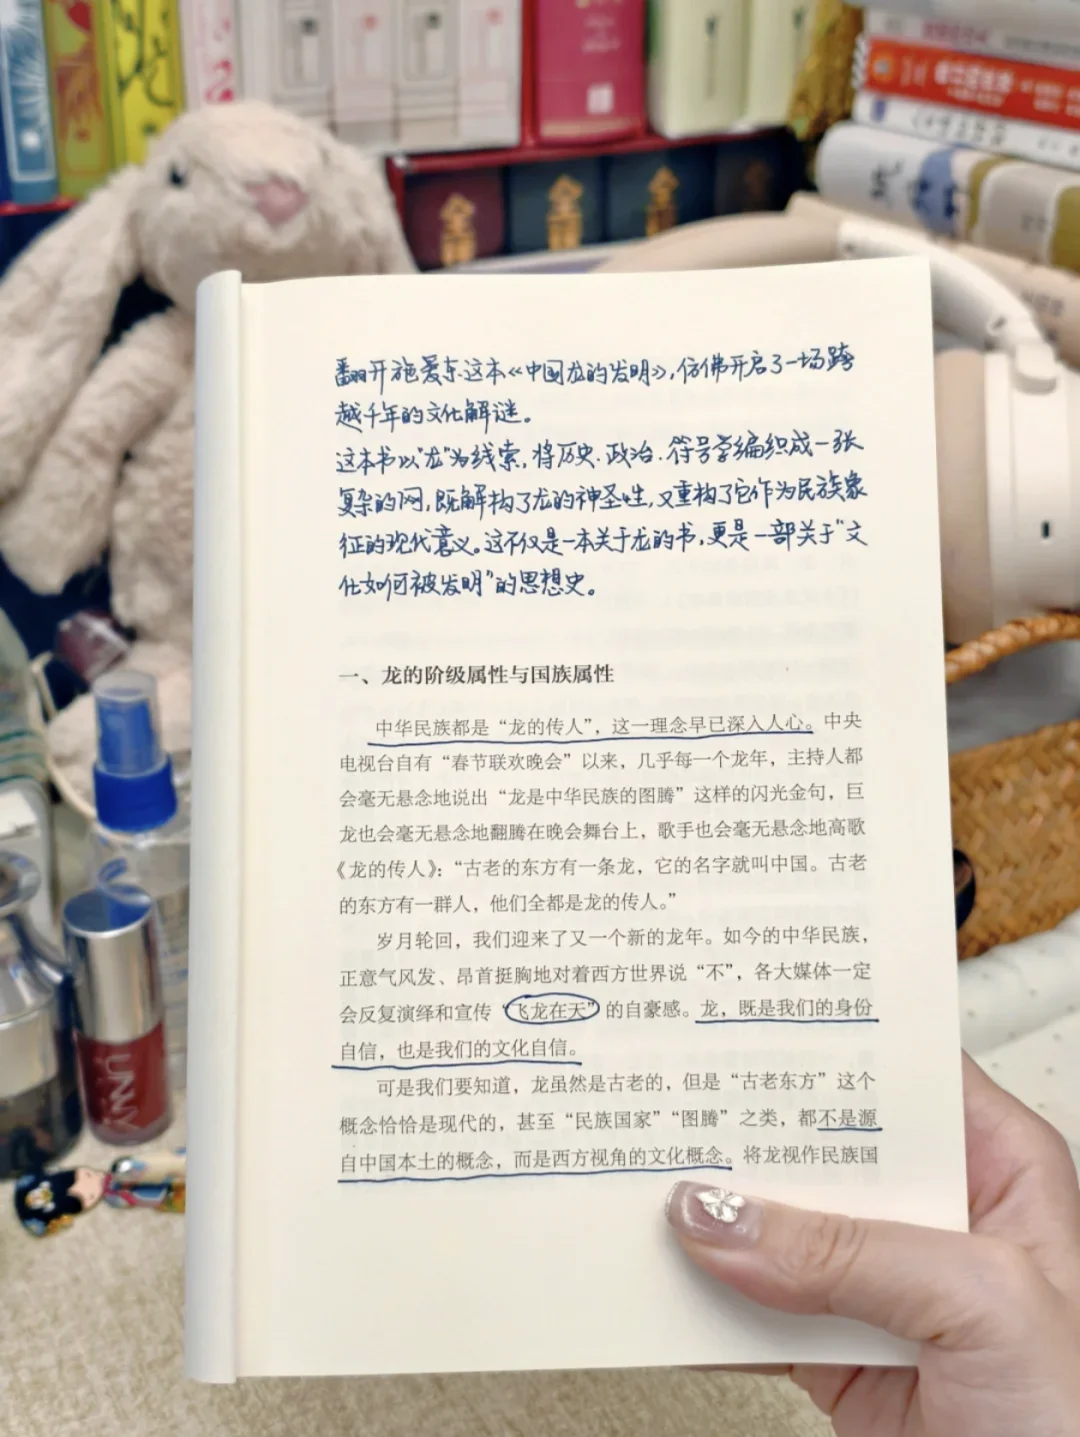 全
全
全
翻开施爱东这本《中国龙的发明》，仿佛开启了一场跨
越千年的文化解谜。
这本书以"龙"为线索，将历史、政治、符号学编织成一张
复杂的网，既解构了龙的神圣性，又重构了它作为民族象
征的现代意义。这不仅是一本关于龙的书，更是一部关于"文
化如何被发明"的思想史。
一、龙的阶级属性与国族属性
中华民族都是“龙的传人”，这一理念早已深入人心。中央
电视台自有“春节联欢晚会”以来，几乎每一个龙年，主持人都
会毫无悬念地说出“龙是中华民族的图腾”这样的闪光金句，巨
龙也会毫无悬念地翻腾在晚会舞台上，歌手也会毫无悬念地高歌
《龙的传人》：“古老的东方有一条龙，它的名字就叫中国。古老
的东方有一群人，他们全都是龙的传人。”
岁月轮回，我们迎来了又一个新的龙年。如今的中华民族，
正意气风发、昂首挺胸地对着西方世界说“不”，各大媒体一定
会反复演绎和宣传“飞龙在天”的自豪感。龙，既是我们的身份
自信，也是我们的文化自信。
可是我们要知道，龙虽然是古老的，但是“古老东方”这个
概念恰恰是现代的，甚至“民族国家”“图腾”之类，都不是源
自中国本土的概念，而是西方视角的文化概念。将龙视作民族国
UNNY